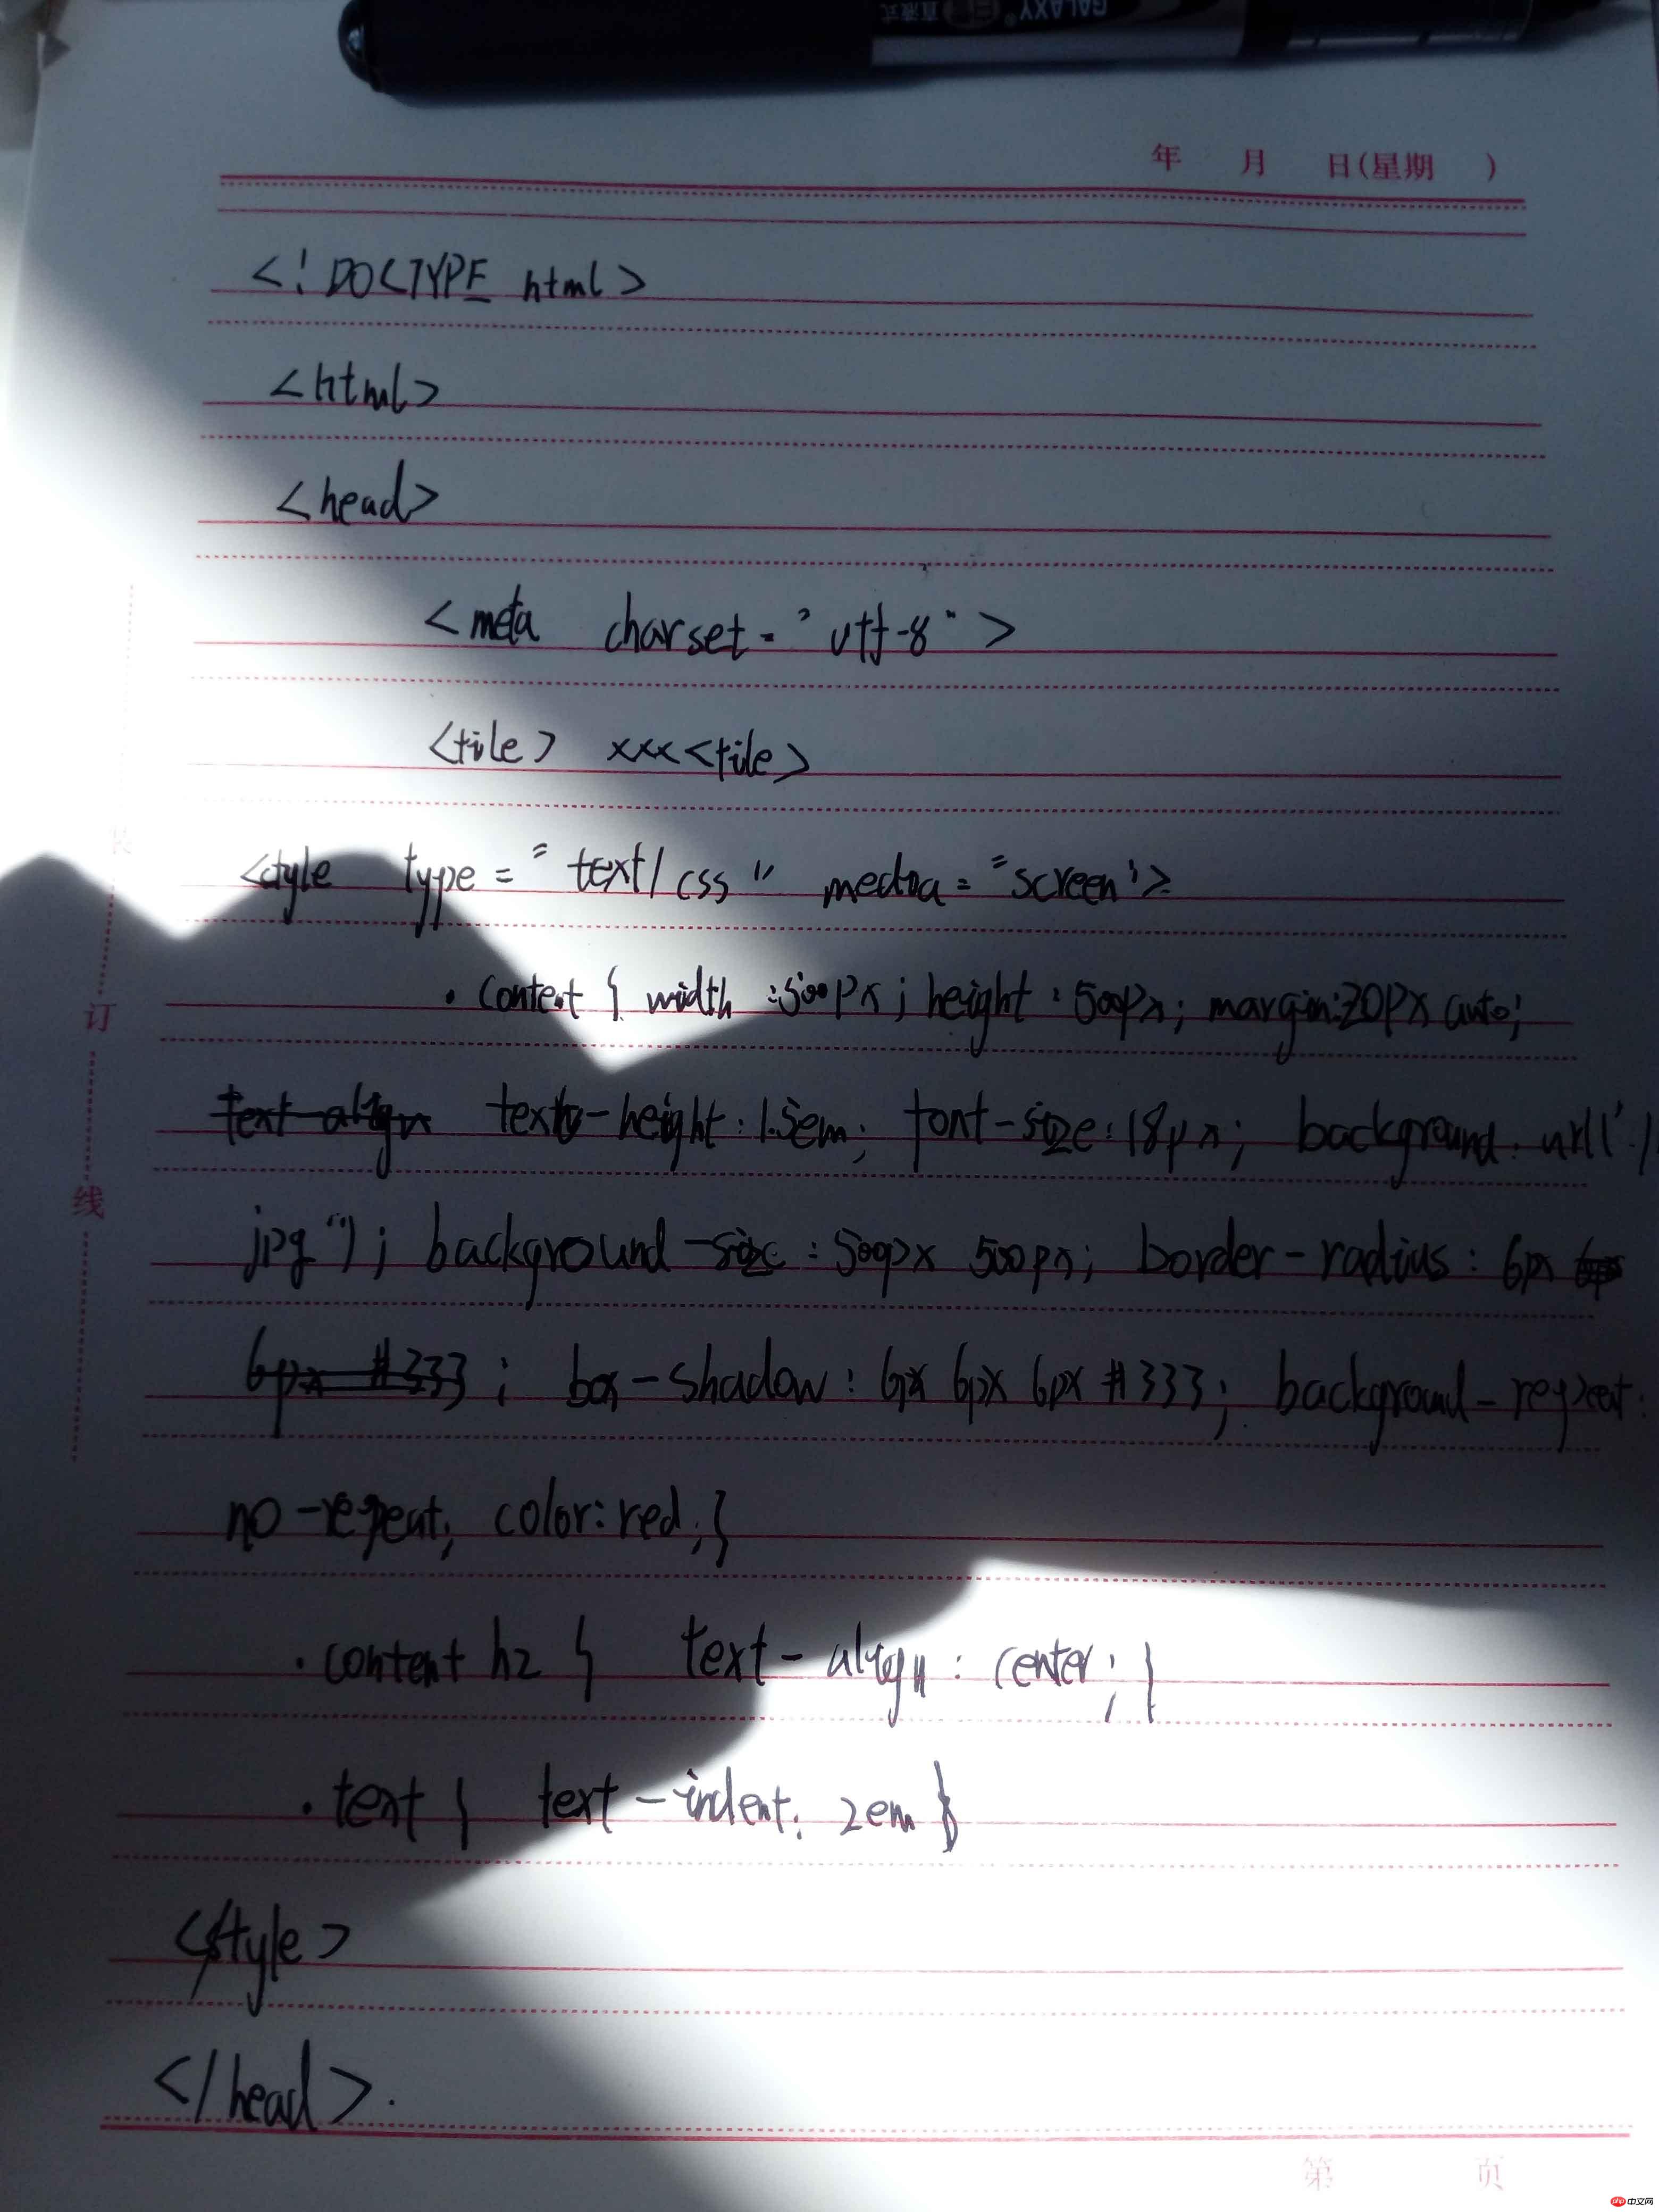 GALAXY® 直液式
年 月 日(星期 )
<!DOCTYPE html>
<html>
<head>
<meta charset="utf-8">
<tile> xxx<tile>
<style type="text/css" media="screen">
.content { width:500px; height:500px; margin:20px auto;
text-align text-height:1.5em; font-size:18px; background:url('.1
jpg"); background-size:500px 500px; border-radius: 6px
6px #333; box-shadow: 6px 6px 6px #333; background-repeat:
no-repeat; color:red;}
.content h2 { text-align: center; }
.text { text-indent: 2em }
</style>
</head>.
订
线
第 页
php 中文网